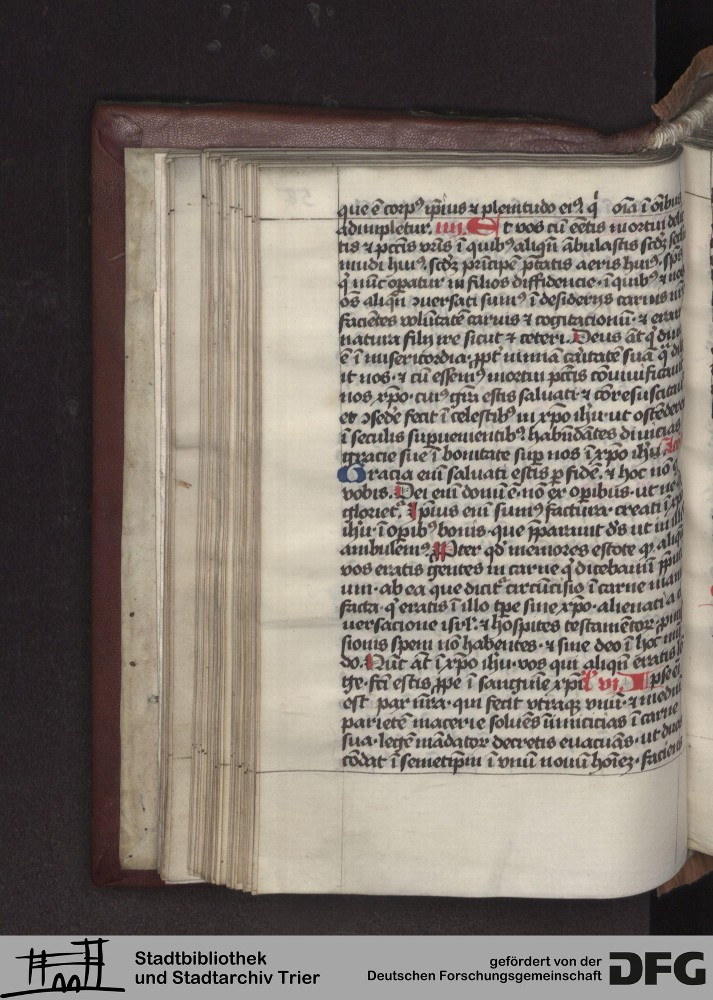 que ē corpꝰ ip̄ius ⁊ plenitudo eiꝰ qͥ oīa ī oībus
adimpletur. iiii. Et vos cū eētis mortui delic
tis ⁊ pctīs vr̄is ī quibꝰ aliqn̄ ābulastis scdꝫ seclm̄
mūdi huiꝰ, scdꝫ prīcipē ptātis aeris huiꝰ, sps
qͥ nūc opatur in filios diffidencie. ī quibꝰ ⁊ nos
oēs aliqn̄ ꝯuersati sumꝰ ī desiderijs carnis nr̄e
faciētes volūtatē carnis ⁊ cogitacionū. ⁊ eramꝰ
natura filij ire sicut ⁊ ceteri. Deus āt qͥ diues
ē ī misericordia. ꝓpt̓ nimiā caritatē suā qͣ dilex
it nos. ⁊ cū essemꝰ mortui pctīs cōuiuificauit
nos xp̄o. cuiꝰ gr̄a estis saluati. ⁊ cōresuscitauit
et ꝯsede̓ fecit ī celestibꝰ in xp̄o ihū. ut ostēderet
ī seculis supuenientibꝰ habūdātes diuicias
gracie sue ī bonitate sup̄ nos ī xp̄o ihū.
Gracia enī saluati estis p fidē. ⁊ hoc nō
vobis. Dei enī donū ē. nō ex opibus. ut ne
gloriet᷑. Ip̄ius enī sumꝰ factura. creati ī xp̄o
ihū. ī opībꝰ bonis. que p̄parauit ds̄ ut in illis
ambulemꝰ. Pter qd̓ memores estote qͥ aliqn̄
vos eratis gentes in carne qͥ dicebamī p̄puci
um. ab ea que dicit᷑ circūcisio ī carne manu
facta. qͥ eratis ī illo tp̄e sine xp̄o. alienati a con
uersacione isrl̓. ⁊ hospites testamētoꝝ. pmis
sionis spem nō habentes. ⁊ sine deo ī hoc mū
do. Nūc āt ī xp̄o ihū. vos qui aliqn̄ eratis lō
ge. fcī estis ꝓpe ī sanguīe xp̄i. vi. Ipse enī
est pax nr̄a. qui fecit vtraqꝫ vnū. ⁊ mediū
parietē macerie soluēs īimicicias ī carne
sua. legē mādatoꝝ decretis euacuās. ut duos
cōdat ī semetip̄m ī vnū nouū hoīeꝫ. faciens
Stadtbibliothek
und Stadtarchiv Trier
gefördert von der
Deutschen Forschungsgemeinschaft
DFG